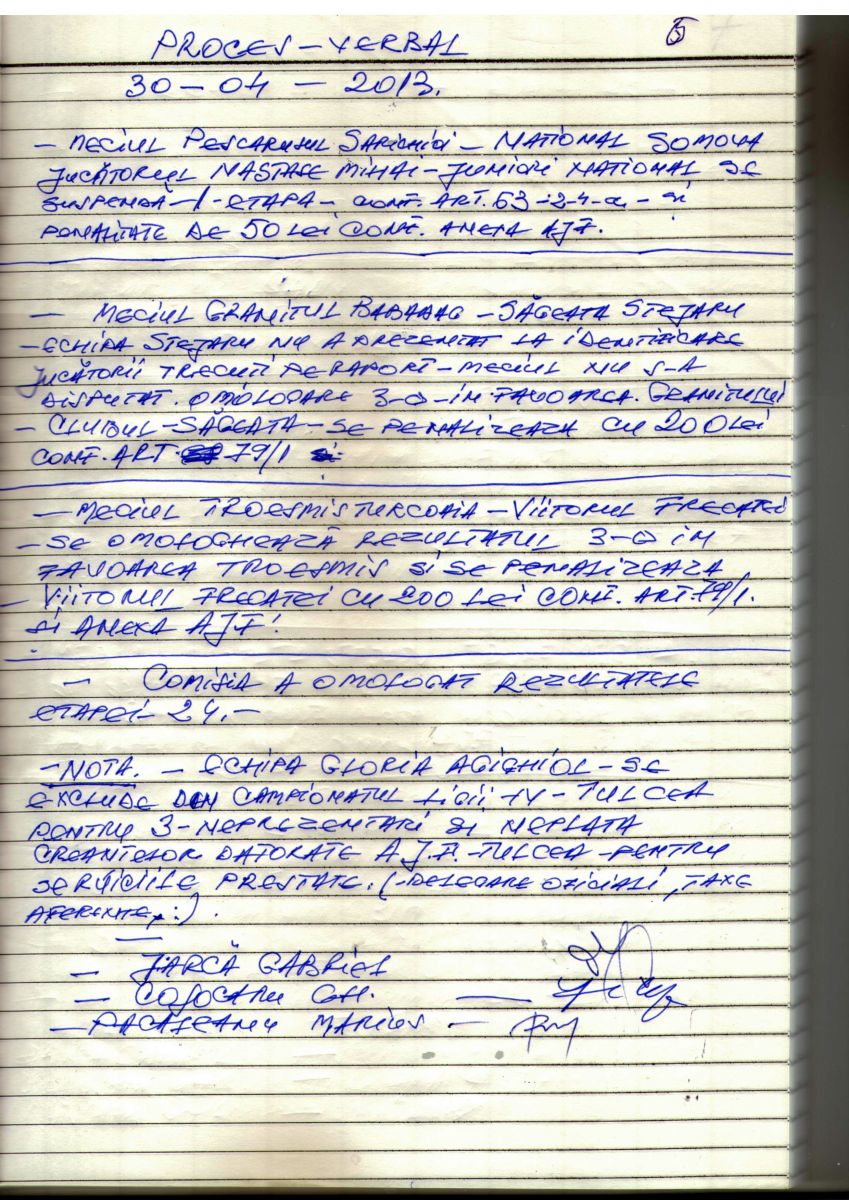 PROCES-VERBAL 5
30-04-2013.
- MECIUL PESCARUSUL SARICHIOI - NATIONAL SOMOVA
JUCĂTORUL NASTASE MIHAI - JUNIORI NATIONAL SE
SUSPENDĂ - 1 - ETAPA - CONF. ART. 63-2-4-a - si
PENALITATE DE 50 LEI CONF. ANEXA AJF.
- MECIUL GRANITUL BABADAG - SĂGEATA STEJARU
- ECHIPA STEJARU NU A PREZENTAT LA IDENTIFICARE
JUCĂTORII TRECUTI PE RAPORT - MECIUL NU S-A
DISPUTAT. OMOLOGARE 3-0 - IN FAVOAREA. GRANITULUI
- CLUBUL - SĂGEATA - SE PENALIZEAZA CU 200 LEI
CONF. ART 79/1
- MECIUL TROESMIS TURCOAIA - VIITORUL FRECATEI
- SE OMOLOGHEAZĂ REZULTATUL 3-0 IN
FAVOAREA TROESMIS SI SE PENALIZEAZA
- VIITORUL FRECATEI CU 200 LEI CONF. ART. 79/1.
SI ANEXA AJF.
- COMISIA A OMOLOGAT REZULTATELE
ETAPEI - 24. -
- NOTA. - ECHIPA GLORIA AGIGHIOL - SE
EXCLUDE DIN CAMPIONATUL LIGII IV - TULCEA
PENTRU 3 - NEPREZENTARI SI NEPLATA
CREANTELOR DATORATE A.J.F. - TULCEA - PENTRU
SERVICIILE PRESTATE. (-DELEGARE OFICIALI, TAXE
AFERENTE, :).
- JARCĂ GABRIEL
- COJOCARU GH. -
- PACAFEANU MARIUS -